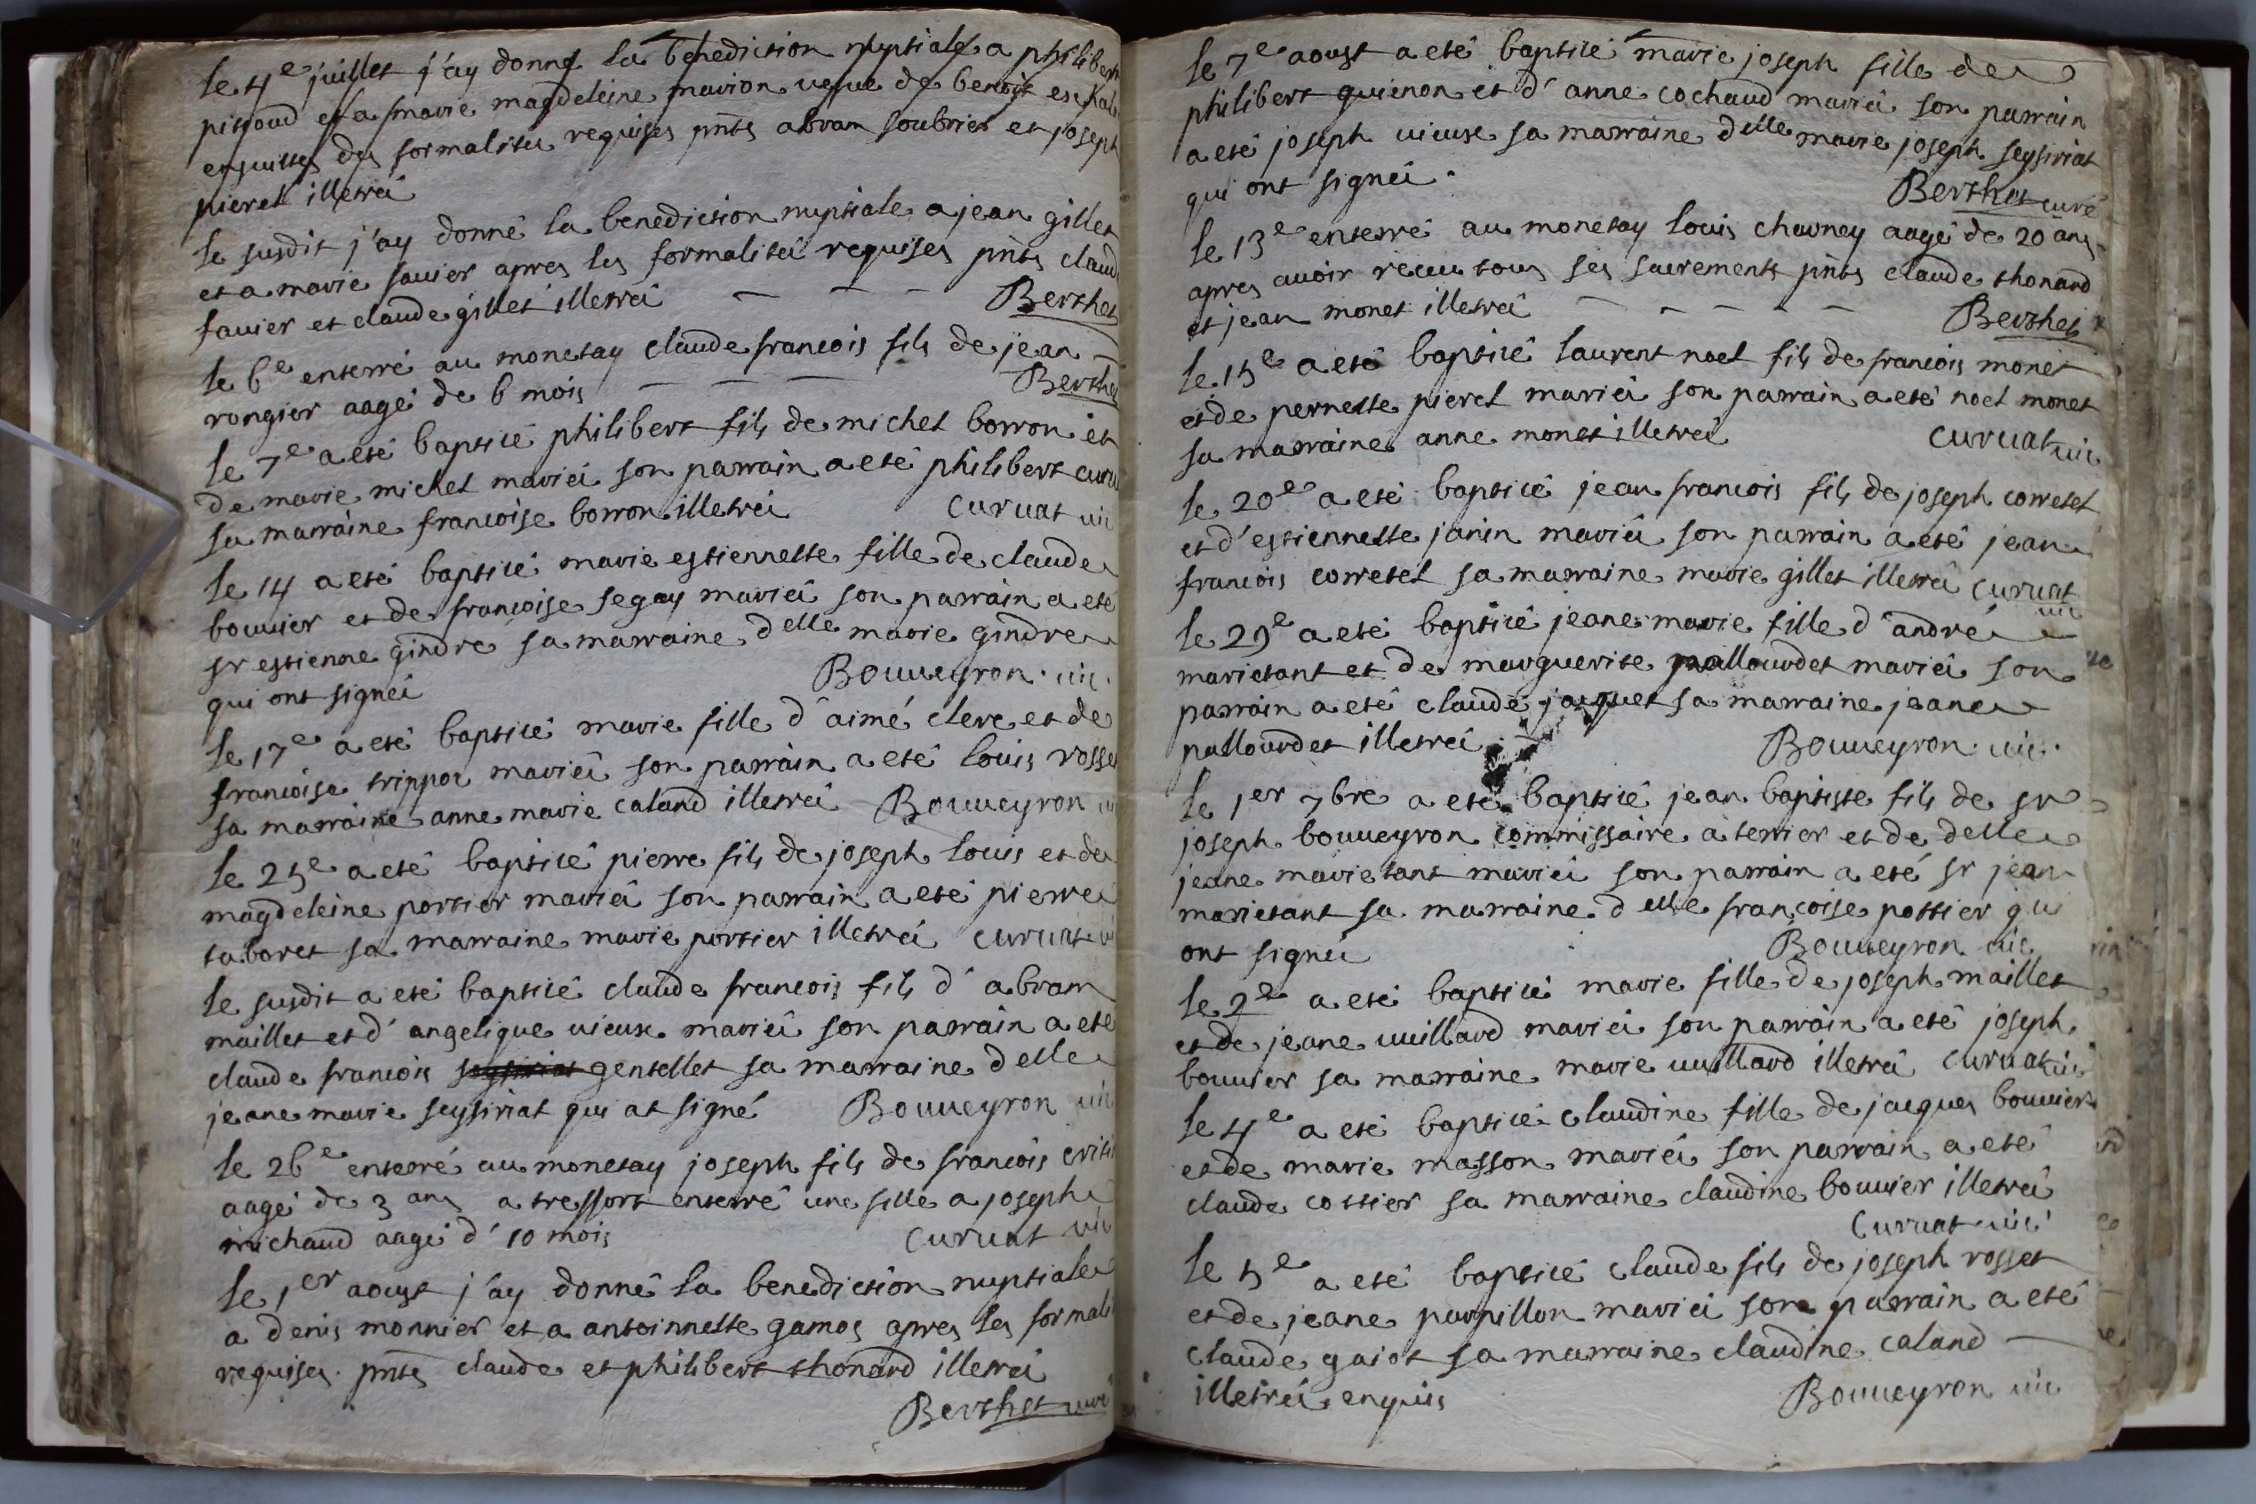 le 4e juillet j'ay donné la benediction nuptiale a philibert
pitioud et a marie magdeleine marion vefue de benoit
ensuittes des formalités requises pnts abram soubrier et joseph
pierel illetrei
le susdit j'ay donné la benediction nuptiale a jean gillet
et a marie fauier apres les formalitei requises pnts claud
fauier et claude gillet illetrei
Berthet
le 6e enterré au monetay claude francois fils de jean
rongier aagé de 6 mois
Berthe
le 7e a eté baptiié philibert fils de michel borron et
de marie michel mariei son parrain a eté philibert curu
sa marraine francoise borron illetrei
Curuat uic
le 14 a eté baptiié marie estiennette fille de claude
bouuier et de francoise segay mariei son parrain a eté
sr estienne gindre sa marraine delle marie gindre
qui ont signei
Bouueyron. uic.
le 17e a eté baptiié marie fille d'aimé clerc et de
francoise trippoz mariei son parrain a eté louis rosset
sa marraine anne marie caland illetrei Bouueyron
le 25e a eté baptiié pierre fils de joseph louis et de
magdeleine portier mariei son parrain a eté pierre
taboret sa marraine marie portier illetrei curuat
le susdit a eté baptiié claude francois fils d'abram
maillet et d'angelique uieux mariei son parrain a eté
claude francois seysiriat gentellet sa marraine delle
jeane marie seysiriat qui at signé Bouueyron uic
le 26e enterré au monetay joseph fils de francois
aagé de 3 ans a tressort enterré une fille a joseph
michaud aagé d'10 mois
Curuat uic
le 1er aoust j'ay donné la benediction nuptiale
a denis monnier et a antoinnette gamos apres les formali
requises. pnts claude et philibert thonard illetrei
Berthet curé
le 7e aoust a eté baptiié marie joseph fille de
philibert guienon et d'anne cochaud mariei son parrain
a eté joseph uieux sa marraine delle marie joseph seysiriat
qui ont signei.
Berthet curé
le 13e enterré au monetay louis charney aagé de 20 ans
apres auoir receu tous ses sacrements pnts claude thonard
et jean monet illetrei
Berthet
le 15e a eté baptiié laurent noel fils de francois monet
et de pernette pierel mariei son parrain a eté noel monet
sa marraine anne monet illetrei
Curuat uic
le 20e a eté baptiié jean francois fils de joseph corretel
et d'estiennette janin mariei son parrain a eté jean
francois corretel sa marraine marie gillet illetrei Curuat
uic
le 29e a eté baptiié jeane marie fille d'andré
marietant et de marguerite pallourdet mariei son
parrain a eté claude jaquet sa marraine jeane
pallourdet illetrei.
Bouueyron. uic.
le 1er 7bre a eté baptiié jean baptiste fils de sr
joseph bouueyron commissaire a terrier et de delle
jeane marietant mariei son parrain a eté sr jean
marietant sa marraine delle françoise pottier qui
ont signei
Bouueyron uic
le 2e a eté baptiié marie fille de joseph maillet
et de jeane uuillard mariei son parrain a eté joseph
bouuier sa marraine marie uuillard illetrei Curuat uic
le 4e a eté baptiié claudine fille de jacques bouuier
et de marie masson mariei son parrain a eté
claude cottier sa marraine claudine bouuier illetrei
Curuat uic
le 5e a eté baptiié claude fils de joseph rosset
et de jeane parpillon mariei son parrain a eté
claude gaiot sa marraine claudine caland
illetrei enquis
Bouueyron uic